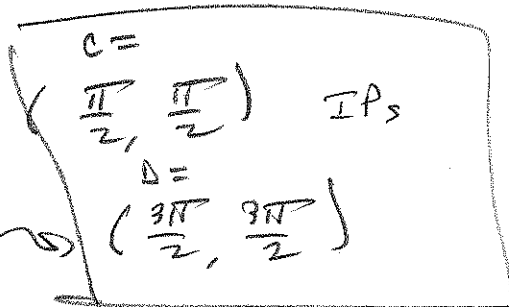 C =
(π/2, π/2) IPs
D =
(3π/2, 3π/2)